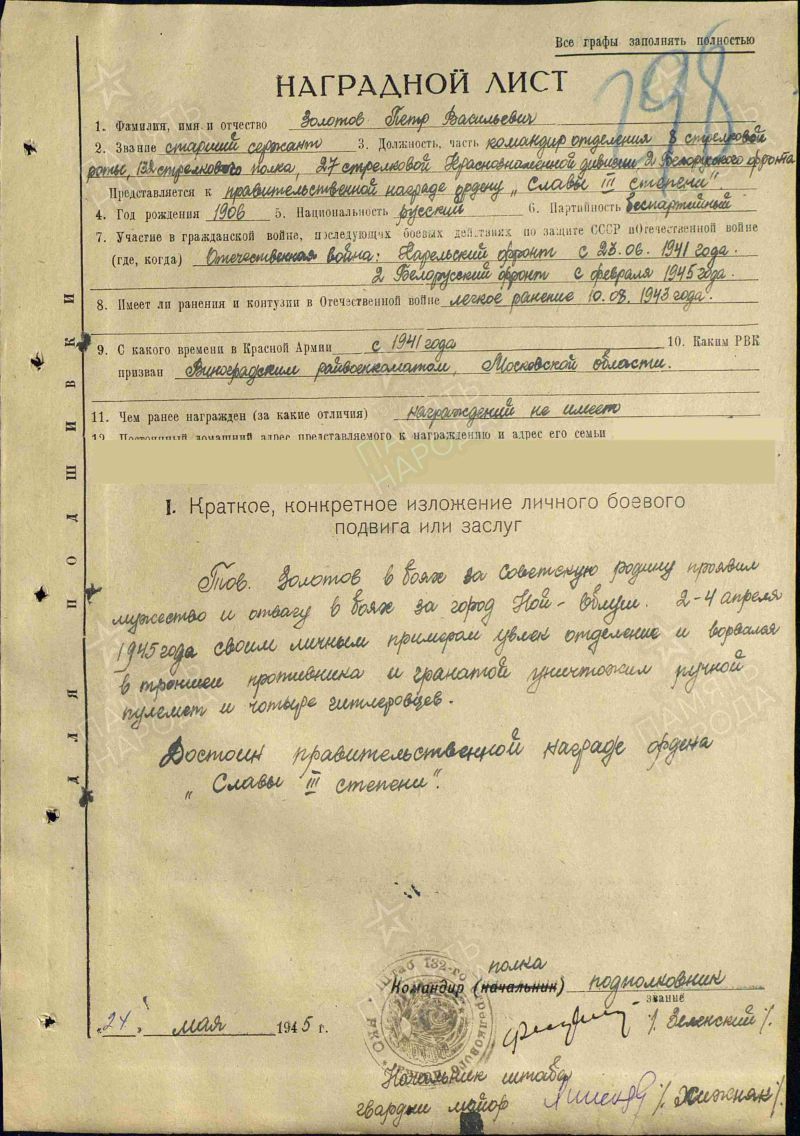 Все графы заполнять полностью
198
НАГРАДНОЙ ЛИСТ
1. Фамилия, имя и отчество Золотов Петр Васильевич
2. Звание старший сержант 3. Должность, часть командир отделения 8 стрелковой
роты, 132 стрелкового полка, 27 стрелковой Краснознаменной дивизии 2 Белорусского фронта
Представляется к правительственной награде ордену „Славы III степени".
4. Год рождения 1906 5. Национальность русский 6. Партийность беспартийный
7. Участие в гражданской войне, последующих боевых действиях по защите СССР и Отечественной войне
(где, когда) Отечественная война: Карельский фронт с 23.06.1941 года.
2 Белорусский фронт с февраля 1945 года.
8. Имеет ли ранения и контузии в Отечественной войне легкое ранение 10.08.1943 года.
9. С какого времени в Красной Армии с 1941 года 10. Каким РВК
призван Виноградским райвоенкоматом, Московской области.
11. Чем ранее награжден (за какие отличия) награждений не имеет
12. Постоянный домашний адрес представляемого к награждению и адрес его семьи
ДЛЯ ПОДШИВКИ
I. Краткое, конкретное изложение личного боевого
подвига или заслуг
Тов. Золотов в боях за советскую родину проявил
мужество и отвагу в боях за город Ной-Облуш. 2-4 апреля
1945 года своим личным примером увлек отделение и ворвался
в траншеи противника и гранатой уничтожил ручной
пулемет и четыре гитлеровцев.
Достоин правительственной награде ордена
„Славы III степени".
полка
Командир (начальник) подполковник
звание
/Зеленский/.
„24" мая 1945 г.
Штаб 132-го стрелкового
Начальник штаба
гвардии майор /Хижняк/
ПАМЯТЬ НАРОДА